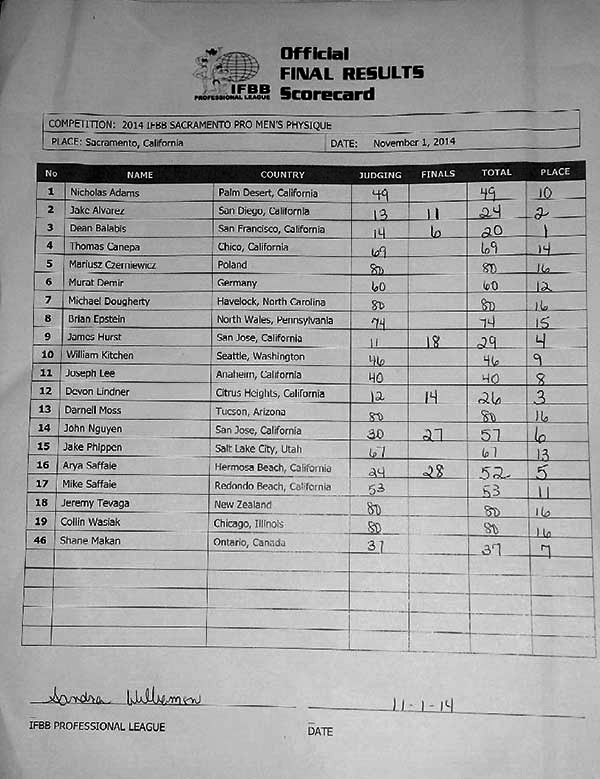 Official
FINAL RESULTS
Scorecard
IFBB
PROFESSIONAL LEAGUE
COMPETITION: 2014 IFBB SACRAMENTO PRO MEN'S PHYSIQUE
PLACE: Sacramento, California DATE: November 1, 2014
No NAME COUNTRY JUDGING FINALS TOTAL PLACE
1 Nicholas Adams Palm Desert, California 49 49 10
2 Jake Alvarez San Diego, California 13 11 24 2
3 Dean Balabis San Francisco, California 14 6 20 1
4 Thomas Canepa Chico, California 69 69 14
5 Mariusz Czerniewicz Poland 80 80 16
6 Murat Demir Germany 60 60 12
7 Michael Dougherty Havelock, North Carolina 80 80 16
8 Brian Epstein North Wales, Pennsylvania 74 74 15
9 James Hurst San Jose, California 11 18 29 4
10 William Kitchen Seattle, Washington 46 46 9
11 Joseph Lee Anaheim, California 40 40 8
12 Devon Lindner Citrus Heights, California 12 14 26 3
13 Darnell Moss Tucson, Arizona 80 80 16
14 John Nguyen San Jose, California 30 27 57 6
15 Jake Phippen Salt Lake City, Utah 67 67 13
16 Arya Saffaie Hermosa Beach, California 24 28 52 5
17 Mike Saffaie Redondo Beach, California 53 53 11
18 Jeremy Tevaga New Zealand 80 80 16
19 Collin Wasiak Chicago, Illinois 80 80 16
46 Shane Makan Ontario, Canada 37 37 7
Sandra 11-1-14
IFBB PROFESSIONAL LEAGUE DATE